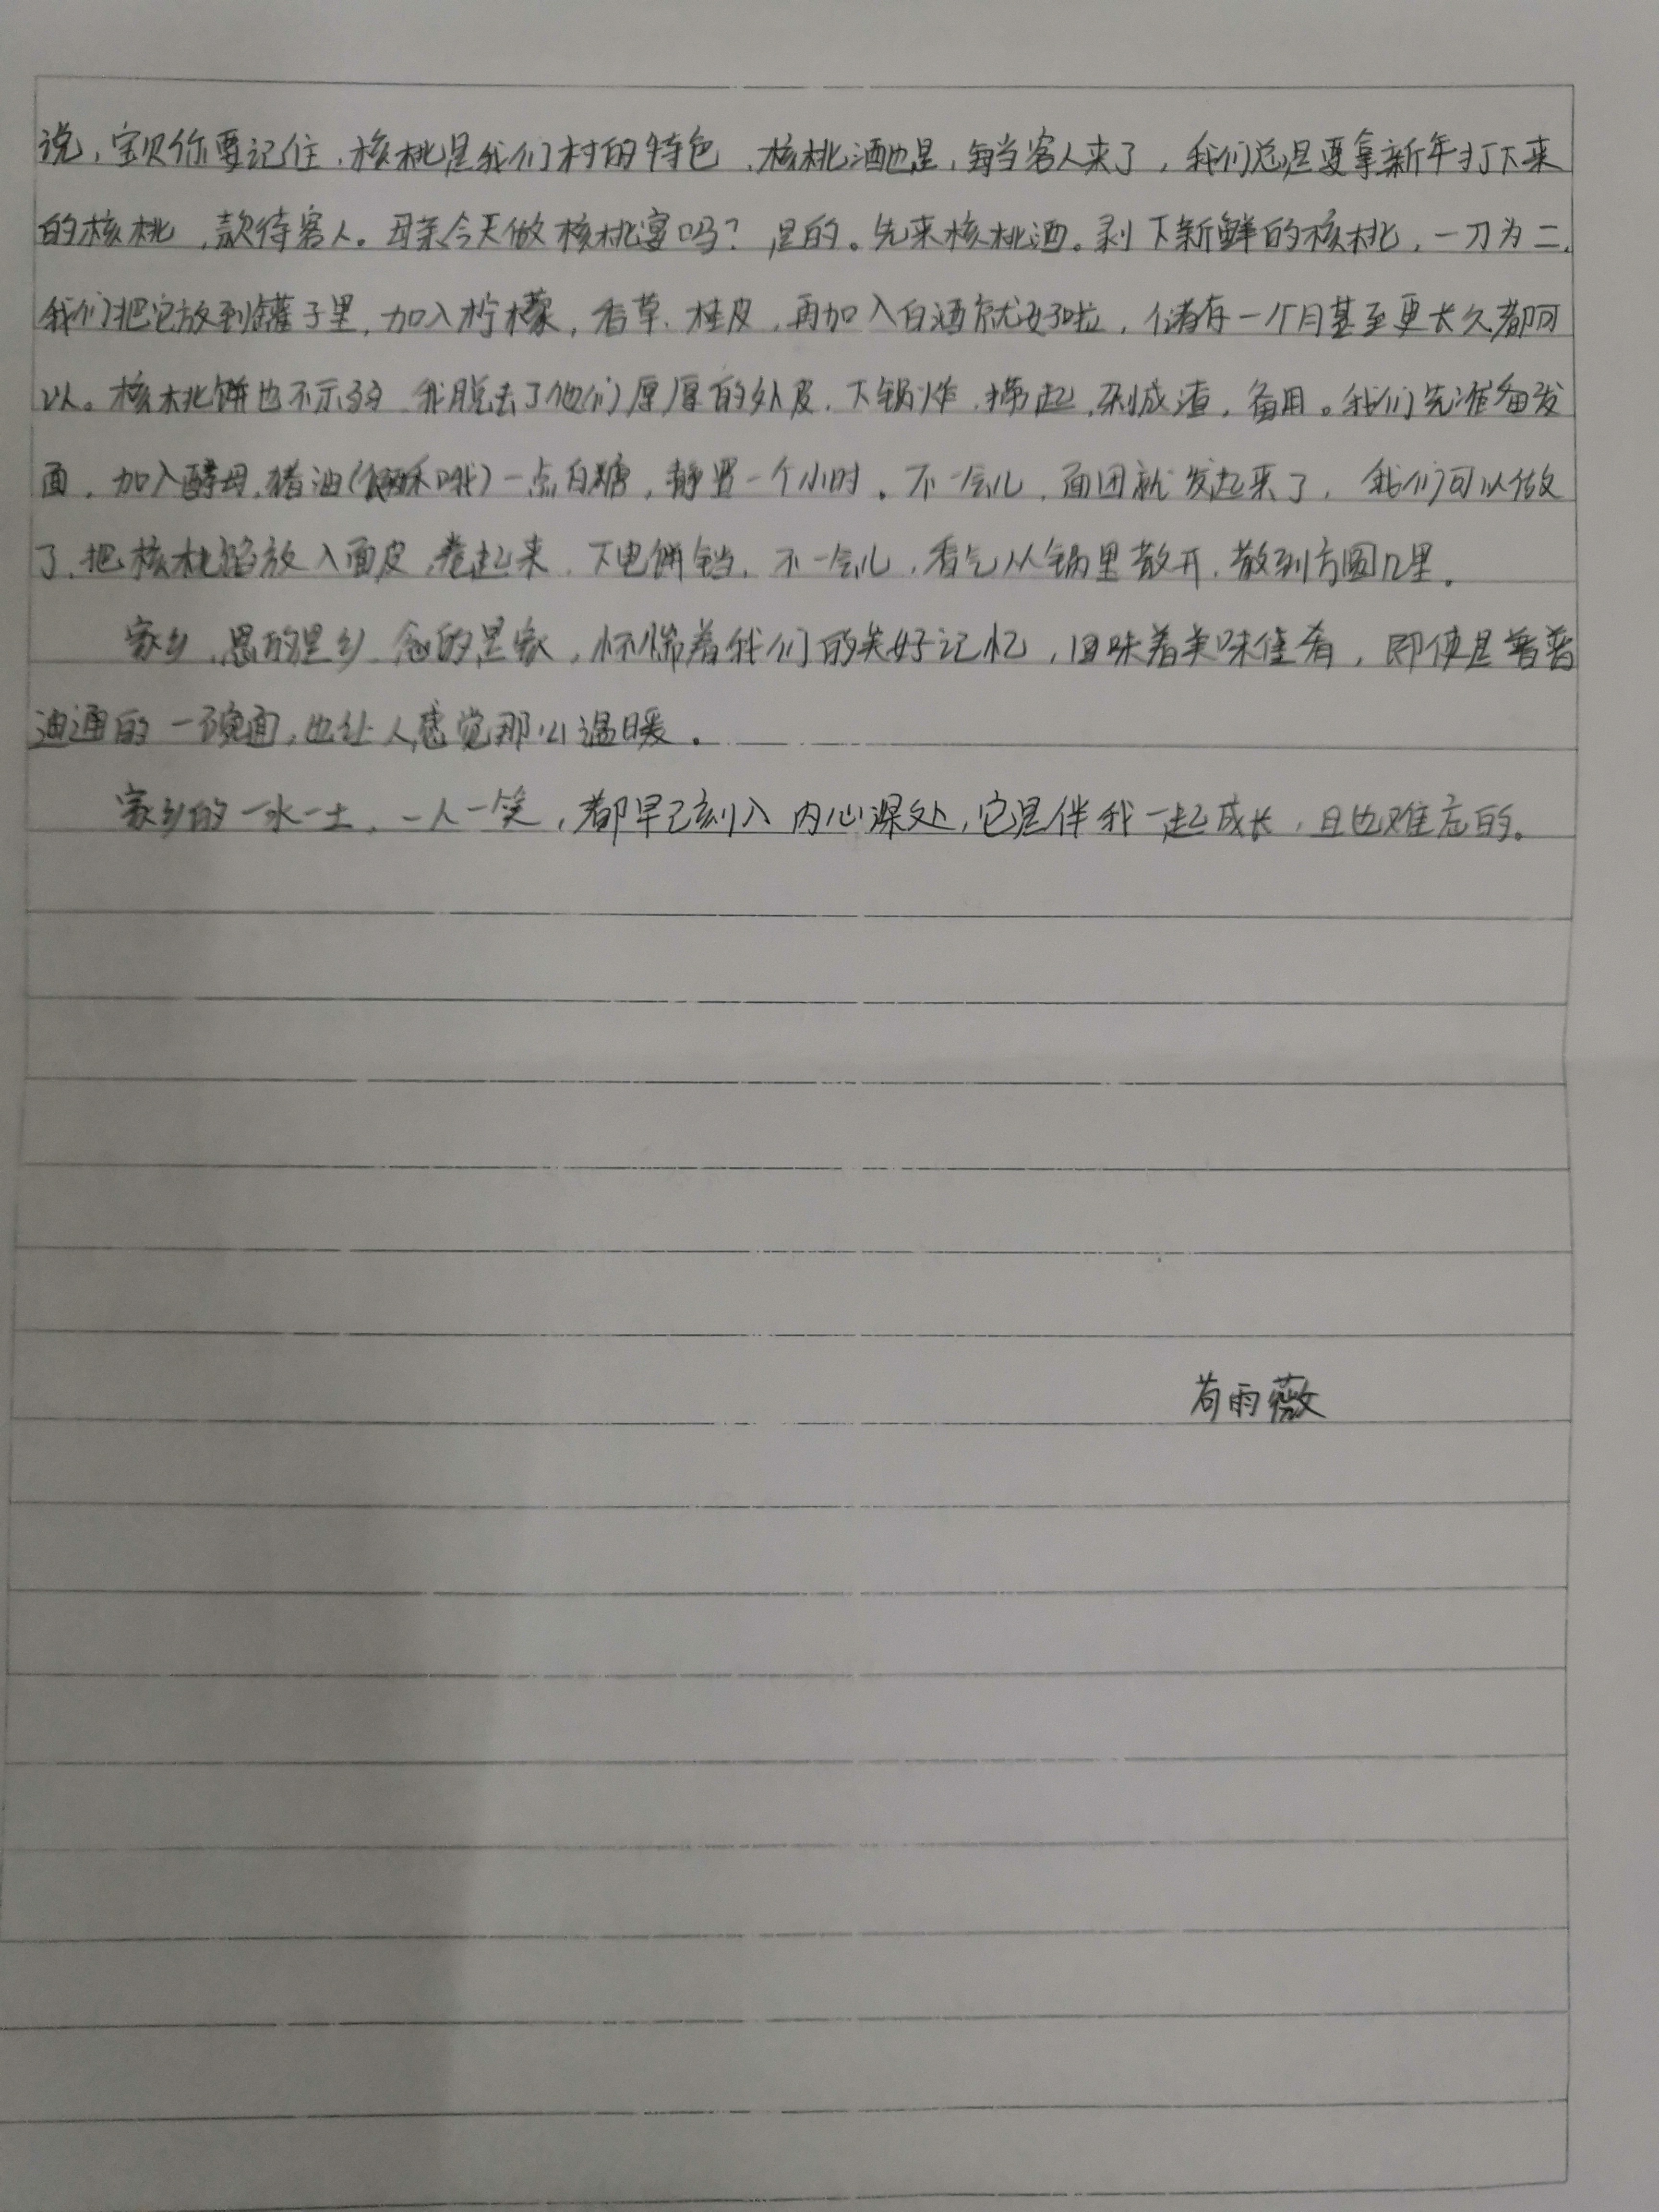 说，宝贝你要记住，核桃是我们村的特色，核桃酒也是，每当客人来了，我们总是要拿新年打下来
的核桃，款待客人。母亲今天做核桃宴吗？是的。先来核桃酒。剥下新鲜的核桃，一刀为二，
我们把它放到罐子里，加入柠檬，香草、桂皮，再加入白酒就好啦，储存一个月甚至更长久都可
以。核桃饼也不示弱，我脱去了他们厚厚的外皮，下锅炸，捞起，剁成渣，备用。我们先准备发
面，加入酵母，猪油（ 哦）一点白糖，静置一个小时。不一会儿，面团就发起来了，我们可以做
了，把核桃馅放入面皮，卷起来，下电饼铛，不一会儿，香气从锅里散开，散到方圆几里。
家乡，思的是乡，念的是家，怀惴着我们的美好记忆，回味着美味佳肴，即使是普普
通通的一碗面，也让人感觉那么温暖。
家乡的一水一土，一人一笑，都早已刻入内心深处，它是伴我一起成长，且也难忘的。
苟雨薇